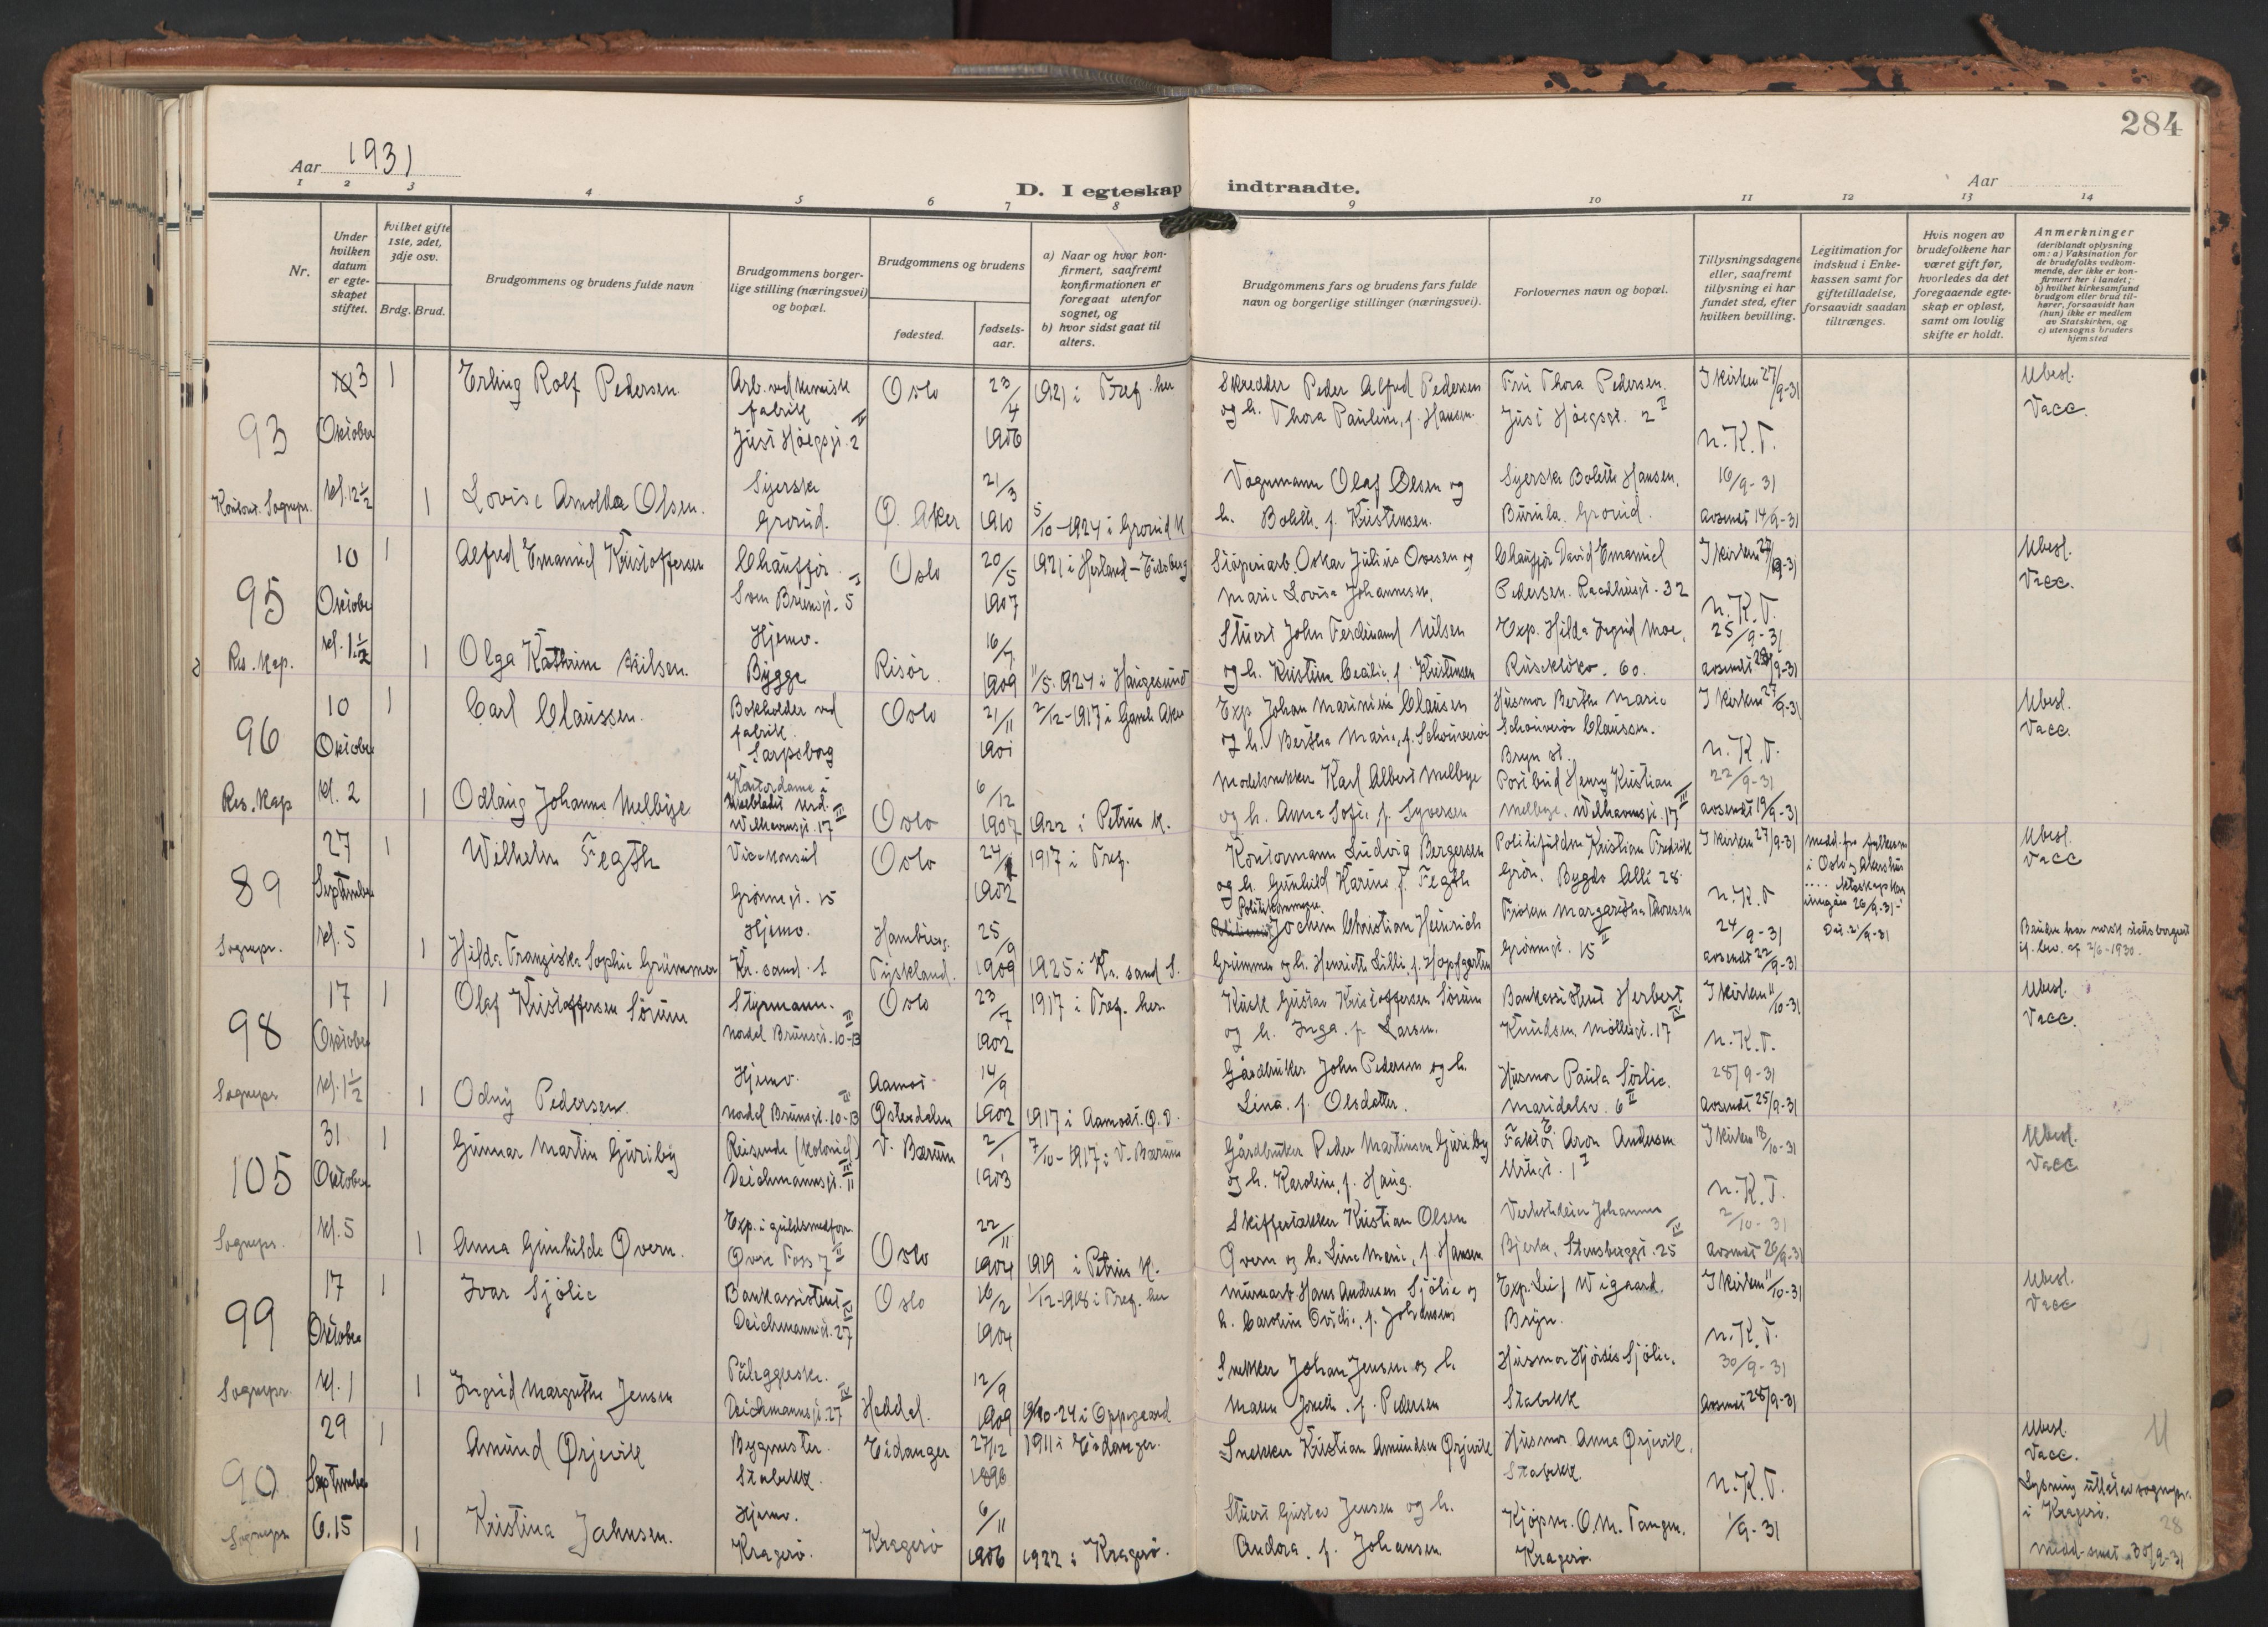 284
Aar 1931
D. I egteskap indtraadte.
Aar
1 2 3 4 5 6 7 8 9 10 11 12 13 14
Nr.
Under hvilken datum er egteskapet stiftet.
Hvilket gifte 1ste, 2det, 3dje osv.
Brdg. Brud.
Brudgommens og brudens fulde navn
Brudgommens borgerlige stilling (næringsvei) og bopæl.
Brudgommens og brudens
fødested.
fødselsaar.
a) Naar og hvor konfirmert, saafremt konfirmationen er foregaat utenfor sognet, og
b) hvor sidst gaat til alters.
Brudgommens fars og brudens fars fulde navn og borgerlige stillinger (næringsvei).
Forlovernes navn og bopæl.
Tillysningsdagene eller, saafremt tillysning ei har fundet sted, efter hvilken bevilling.
Legitimation for indskud i Enkekassen samt for giftetilladelse, forsaavidt saadan tiltrænges.
Hvis nogen av brudefolkene har været gift før, hvorledes da det foregaaende egteskap er opløst, samt om lovlig skifte er holdt.
Anmerkninger
(deriblandt oplysning om: a) Vaksination for de brudefolks vedkommende, der ikke er konfirmert her i landet; b) hvilket kirkesamfund brudgom eller brud tilhører, forsaavidt han (hun) ikke er medlem av Statskirken, og c) utensogns bruders hjemsted
93
3 Oktober
1
Erling Rolf Pedersen.
Arb. ved kemisk fabrik
Just Høegsgt. 2 II
Oslo
23/4 1906
1921 i Tref. her
Skredder Peder Alfred Pedersen
og h. Thora Pauline, f. Hansen.
Fru Thora Pedersen.
Just Høegsgt. 2 II
I kirken 27/9-31
n.K.T.
Ubesl.
Vacc.
Sognepr.
kl. 12½
1
Lovise Arnolda Olsen.
Syerske
Grorud.
Ø. Aker
21/3 1910
5/10-1924 i Grorud K
Vognmann Olaf Olsen og
h. Boleth. f. Kristensen.
Syerske Boleth Hansen.
Grorud.
16/9-31
avsendt 14/9-31
95
10 Oktober
1
Alfred Emanuel Kristoffersen
Chauffør.
Sven Brunsgt. 5 I
Oslo
20/5 1907
1921 i Herland - Eidsberg
Støperiarb. Oskar Julius Ovesen og
Marie Lovise Johannesen.
Chauffør David Emanuel
Pedersen. Raadhusgt. 32
I kirken 27/9-31
n.K.T.
Ubesl.
Vacc.
Res. kap.
kl. 1½
1
Olga Kathrine Nilsen.
Hjemv.
Bygge
Risør.
16/7 1909
11/5-1924 i Haugesund
Stuert John Ferdinand Nilsen
og h. Kristine Cecilie, f. Kristensen
Exp. Hilda Ingrid Moe,
Ruseløkv. 60.
25/9-31
avsendt 23/9-31
96
10 Oktober
1
Carl Claussen.
Bokholder ved fabrik.
Sarpsborg
Oslo
21/11 1901
2/12-1917 i Gamle Aker
Exp Johan Marinius Clausen
og h. Bertha Marie, f. Schouverøe
Husmor Berthe Marie
Schouverøe Claussen.
Bryn st.
I kirken 27/9-31
n.K.T.
Ubesl.
Vacc.
Res. kap
kl. 2
1
Odlaug Johanne Melbye
Kontordame i
Welhavensgt. 17 III
Oslo
6/12 1907
1922 i Petrus K.
Modelsnekker Karl Albert Melbye
og h. Anna Sofie f. Syversen
Postbud Henry Kristian
Melbye. Welhavensgt. 17 III
22/9-31
avsendt 19/9-31
89
27 September
1
Wilhelm Fegth
Visekonsul
Grønnegt. 15
Oslo
1902
1917 i Tref.
Kontormann Ludvig Bergersen
og h. Gunhild Karine f. Fegth
Politifuldm Kristian Fredrik
Grøn. Bygdø Allé 28.
I kirken 27/9-31
n.K.T
medd. fra fylkesm
i Oslo og Akershus
.... ekteskap kan
inngåes 26/9-31
Ubesl.
Vacc
Sognepr.
kl. 5
1
Hilda Franziska Sophie Grümmer
Hjemv.
Kr. sand. S
Hamburg.
Tyskland.
25/9 1909
1925 i Kr. sand S.
Jochim Christian Heinrich
Grümmer og h. Henriette Lilli, f. Hopfgarten
Frøken Margaretha Thoresen
Grønnegt. 15 II
24/9-31
avsendt 22/9-31
Dat. 21/9-31
Bruden har norsk statsborgerret
if. lov. af 2/6-1930.
98
17 Oktober
1
Olaf Kristoffersen Sørum
Styrmann.
Nordal Brunsgt. 10-13 III
Oslo
23/7 1902
1917 i Tref. her
Kusk Gustav Kristoffersen Sørum
og h. Inga. f. Larsen.
Bankassistent Herbert
Knudsen Møllergt. 17
I kirken 11/10-31
n.K.T.
Ubesl.
Vacc.
Sognepr
kl. 1½
1
Odny Pedersen.
Hjemv.
Nordal Brunsgt. 10-13 III
Aamot
Østerdalen
14/9 1902
1917 i Aamodt. Ø.D.
Gårdbruker John Pedersen og h.
Lina. f. Olsdatter.
Husmor Paula Sørlie.
Maridalsv. 6 II
28/9-31
avsendt 25/9-31
105
31 Oktober
1
Gunnar Martin Guriby
Reisende (kolonial)
Deichmannsgt. 11
V. Bærum
2/1 1903
7/10-1917 i V. Bærum
Gårdbruker Peder Martinsen Guriby
og h. Karoline, f. Haug.
Faktor Aron Andersen
Urtegt. 1 I
I kirken 18/10-31
n.K.T.
Ubesl.
Vacc
Sognepr.
kl. 5
1
Anna Gunhilde Øvern.
Exp. i guldsmedforr.
Øvre Foss 7 II
Oslo
22/11 1904
1919 i Petrus K.
Skiffertekker Kristian Olsen
Øvern og h. Line Marie, f. Hansen
Verksteieier Johannes
Bjerke, Stensberggt. 25
2/10-31
avsendt 26/9-31
99
17 Oktober
1
Ivar Sjølie
Bankassistent
Deichmannsgt. 27 IV
Oslo
16/2 1904
1/12-1918 i Tref. her
Murerarb Hans Andresen Sjølie og
h. Caroline Ovidie, f. Johansen
Exp. Leif Wigaard.
Bryn.
I kirken 11/10-31
n.K.T.
Ubesl.
Vacc
Sognepr.
kl. 1
1
Ingrid Margrethe Jensen
Påleggerske.
Deichmannsgt. 27 IV
Heddal.
12/9 1909
/10-24 i Oppegaard
Snekker Johan Jensen og h.
Maren Josefe. f. Pedersen
Husmor Hjørdis Sjølie.
Stabekk
30/9-31
Avsendt 28/9-31
90
29 September
1
Amund Ørjevik
Bygmester.
Stabekk.
Eidanger
27/12 1896
1911 i Eidanger.
Snekker Kristian Amundsen Ørjevik
Husmor Anna Ørjevik,
Stabekk
n.K.T.
Ubesl.
Vacc.
Lysning utført av sognepr.
i Kragerø.
Sognepr.
6.15
1
Kristina Jahnsen.
Hjemv.
Kragerø.
Kragerø
6/11 1906
1922 i Kragerø.
Stuert Gustav Jensen og h.
Andora. f. Johansen
Kjøpm. O.M. Tangen.
Kragerø.
1/9-31
28
Medd. sendt 30/9-31